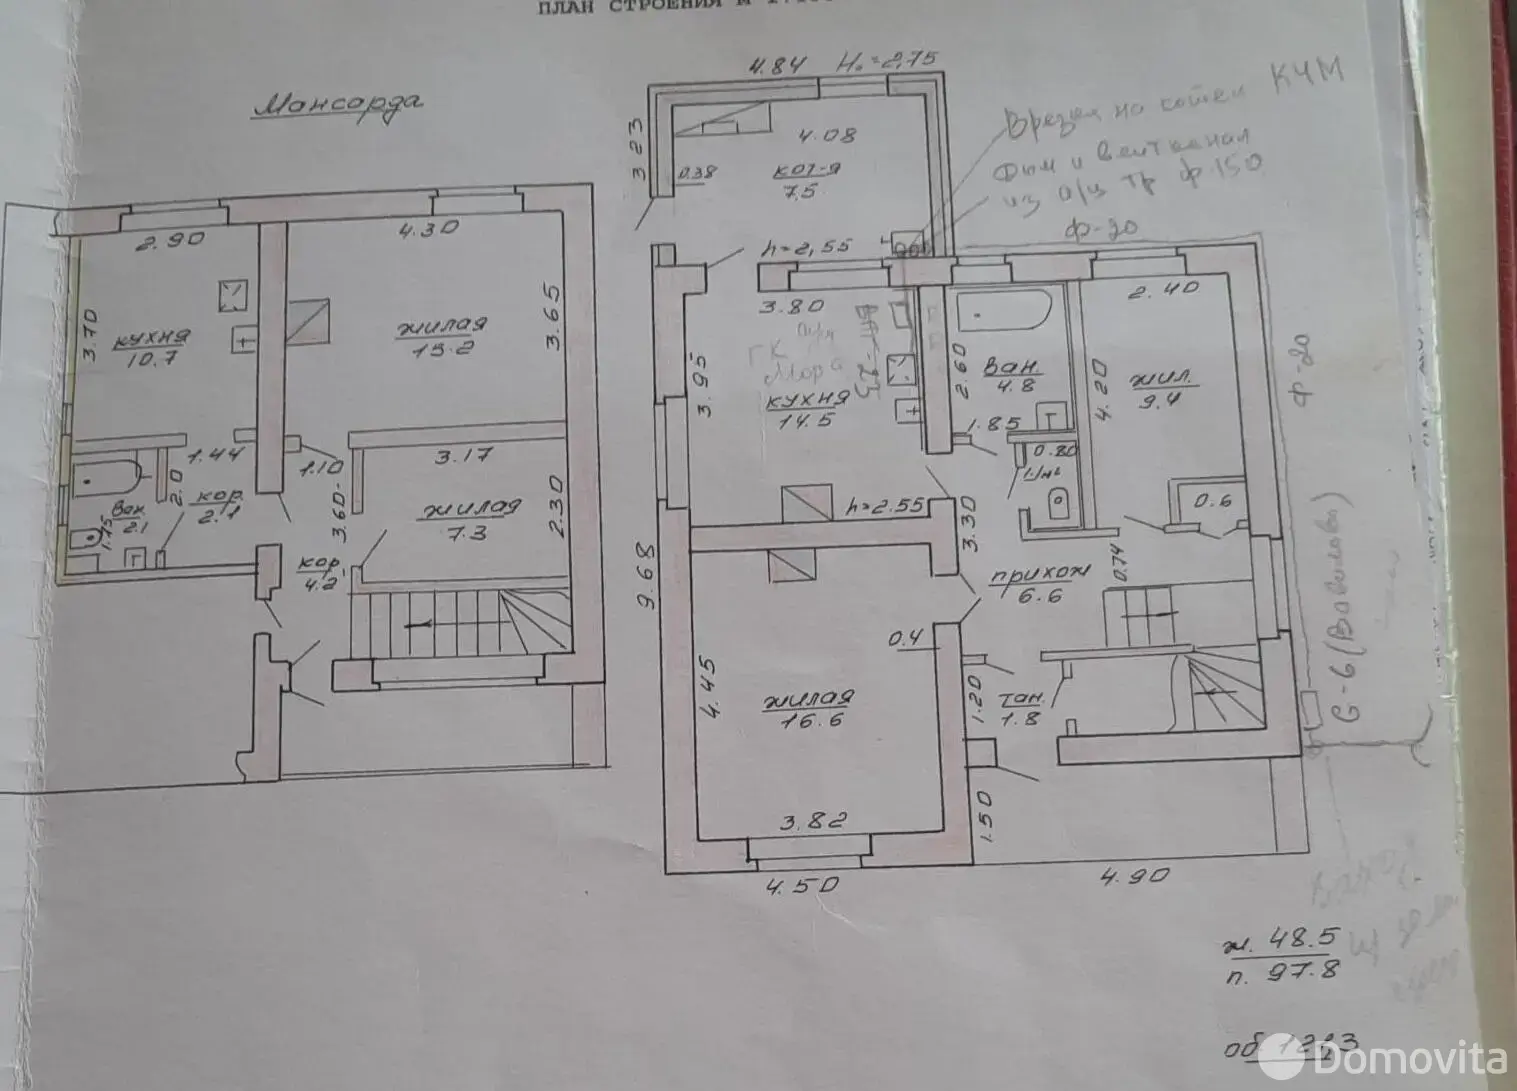 ПЛАН СТРОЕНИЯ М
Мансарда
2.90
4.30
3.70
кухня
10.7
жилая
15.2
3.65
1.44
1.10
3.17
2.0
кор.
2.1
Ван.
2.1
1.15
3.60
жилая
7.3
2.30
кор.
4.2
4.84
Н.=2,75
3.23
4.08
0.38
кот-я
7.5
h=2,55
Врезка на котел КЧМ
Дым и вент канал
из а/ц тр ф 150
ф-20
3.80
2.40
ГК
3.95
кухня
14.5
2.60
Ван.
4.8
4.20
жил.
9.4
ф-20
1.85
0.80
h=2.55
3.30
0.6
9.68
0.74
прихож
6.6
G-6 (Вавилова)
0.4
4.45
жилая
16.6
1.20
Тан.
1.8
3.82
1.50
4.50
4.90
ж. 48.5
п. 97.8
об.
Domovita